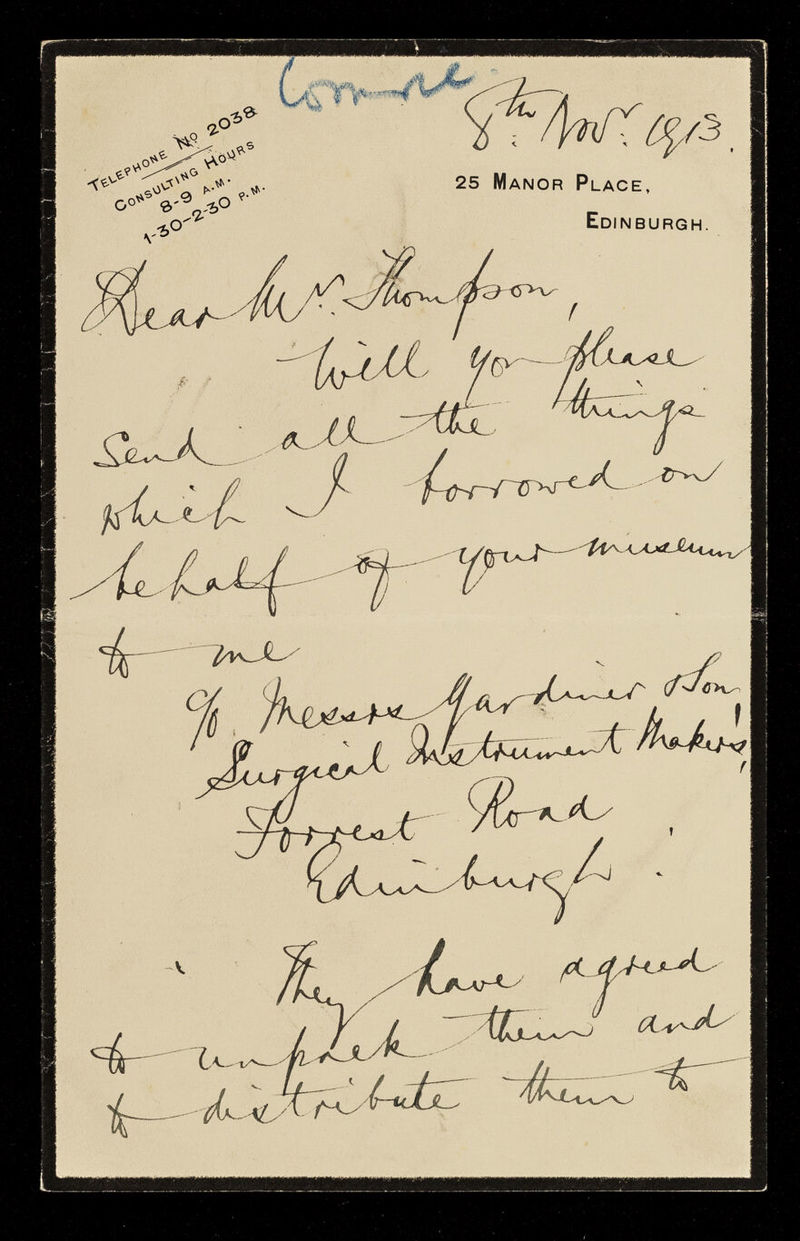 Comrie
8th. Novr. 1913.
TELEPHONE No 2038
CONSULTING HOURS
8-9 A.M.
1-30-2-30 P.M.
25 MANOR PLACE,
EDINBURGH.
Dear Mr. Thompson,
Will you please
send all the things
which I borrowed on
behalf of your museum
to me
c/o Messrs Gardiner & Son,
Surgical Instrument Makers,
Forrest Road
Edinburgh.
They have agreed
to unpack them and
to distribute them to